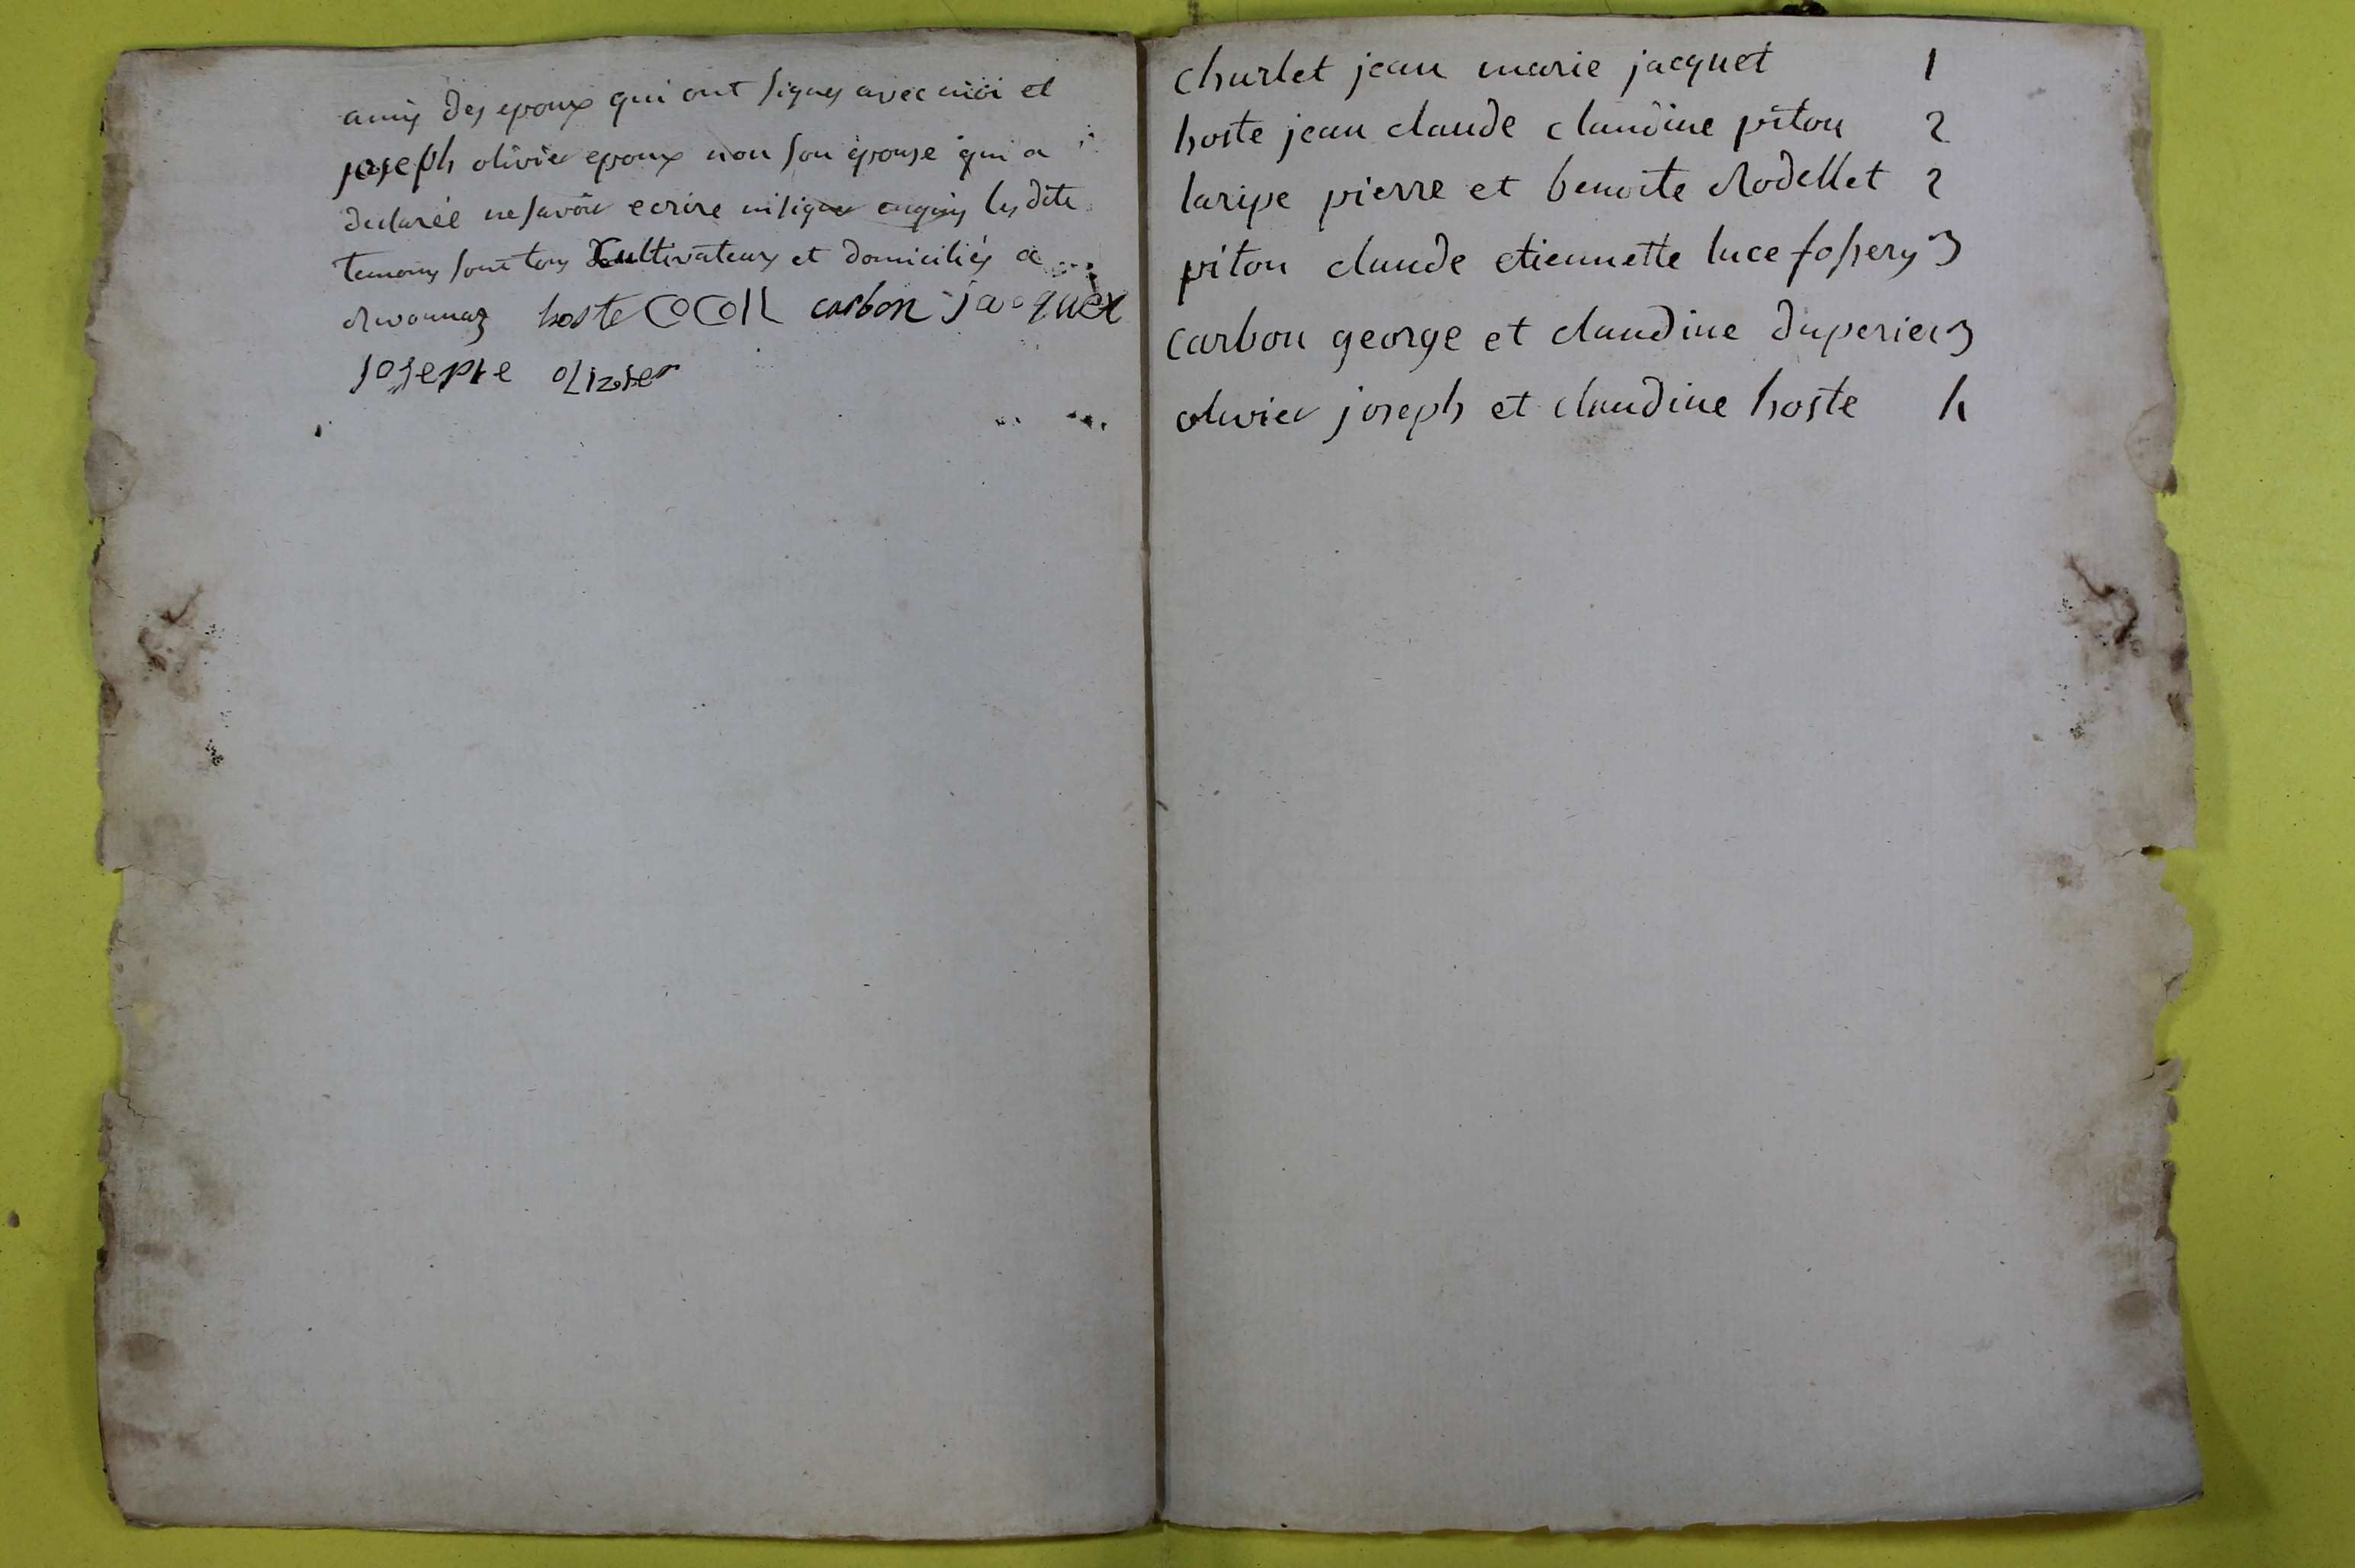 amis des epoux qui ont signes avec moi et
joseph olivier epoux non son epouse qui a
declareé ne savoir ecrire ni signer les dits
temoins sont tous cultivateurs et domiciliés a
hoste cocon carbon jacquet
josepte olizier
churlet jean marie jacquet 1
hoste jean claude claudine piton 2
laripe pierre et benoite rodellet 2
piton claude etiennette luce fossery 3
carbon george et claudine duperier 3
olivier joseph et claudine hoste 4